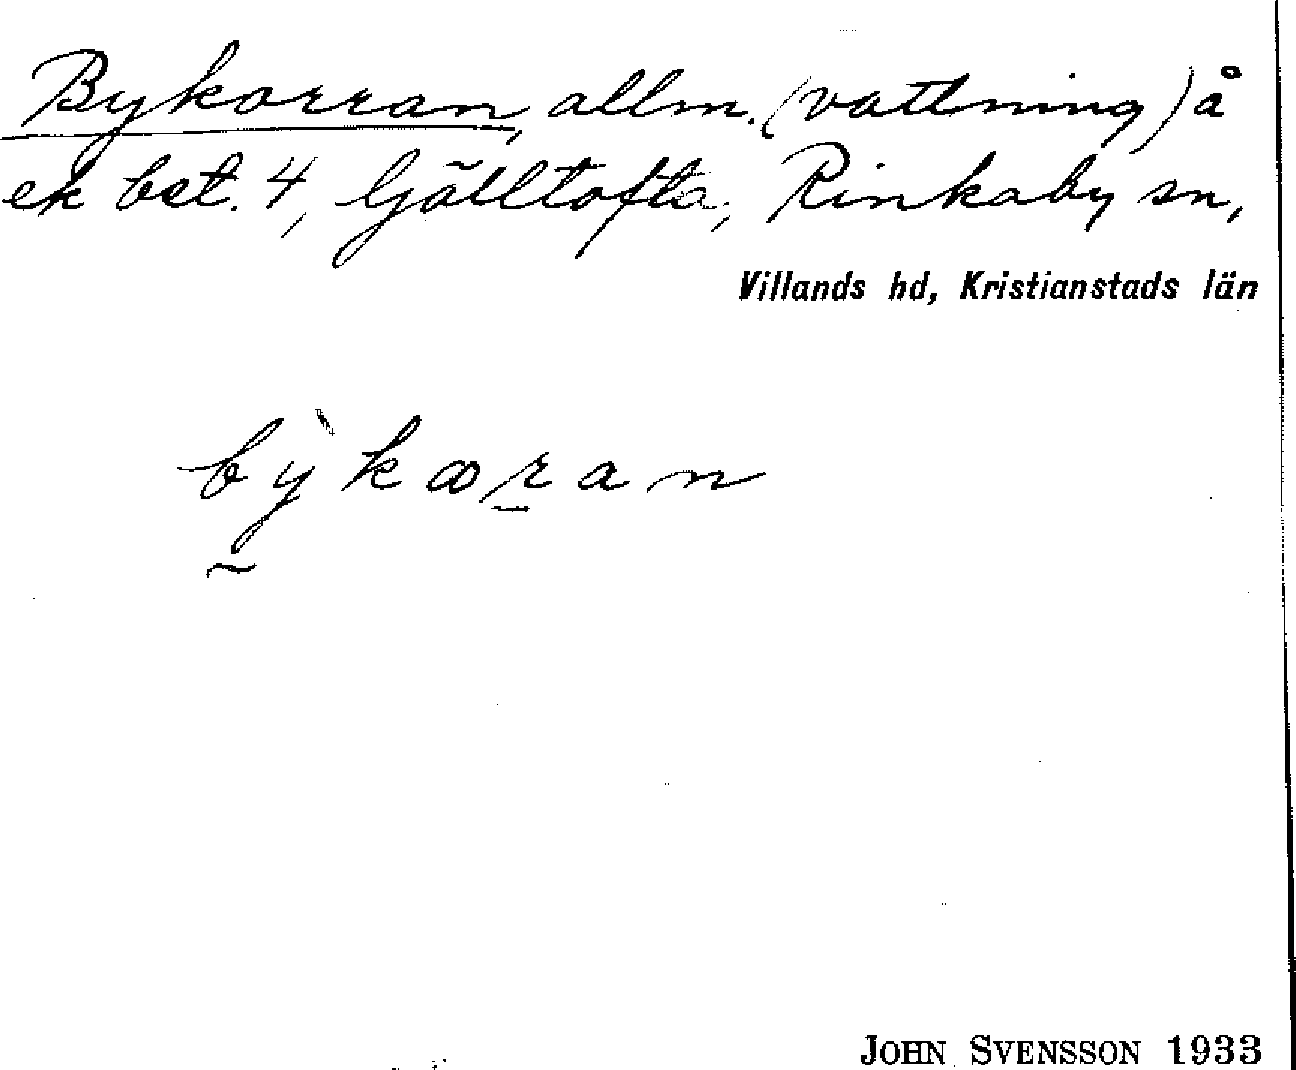 Bykorran, allm. (vattning) å
ek bet. 4, Gjälltofta, Rinkaby sn,
Villands hd, Kristianstads län
bỳkꝏran
JOHN SVENSSON 1933